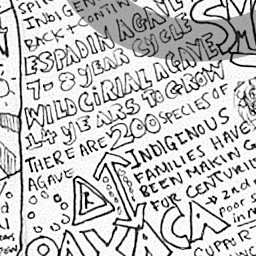 INDIGEN
BACK
ESPADIN AGAVE
7-8 YEAR CYCLE
WILD CIRIAL AGAVE
14 YEARS TO GROW
THERE ARE 200 SPECIES OF
AGAVE
INDIGENOUS
FAMILIES HAVE
BEEN MAKIN G
FOR CENTURI
2nd
Poor S
OAXACA
SUPPOR